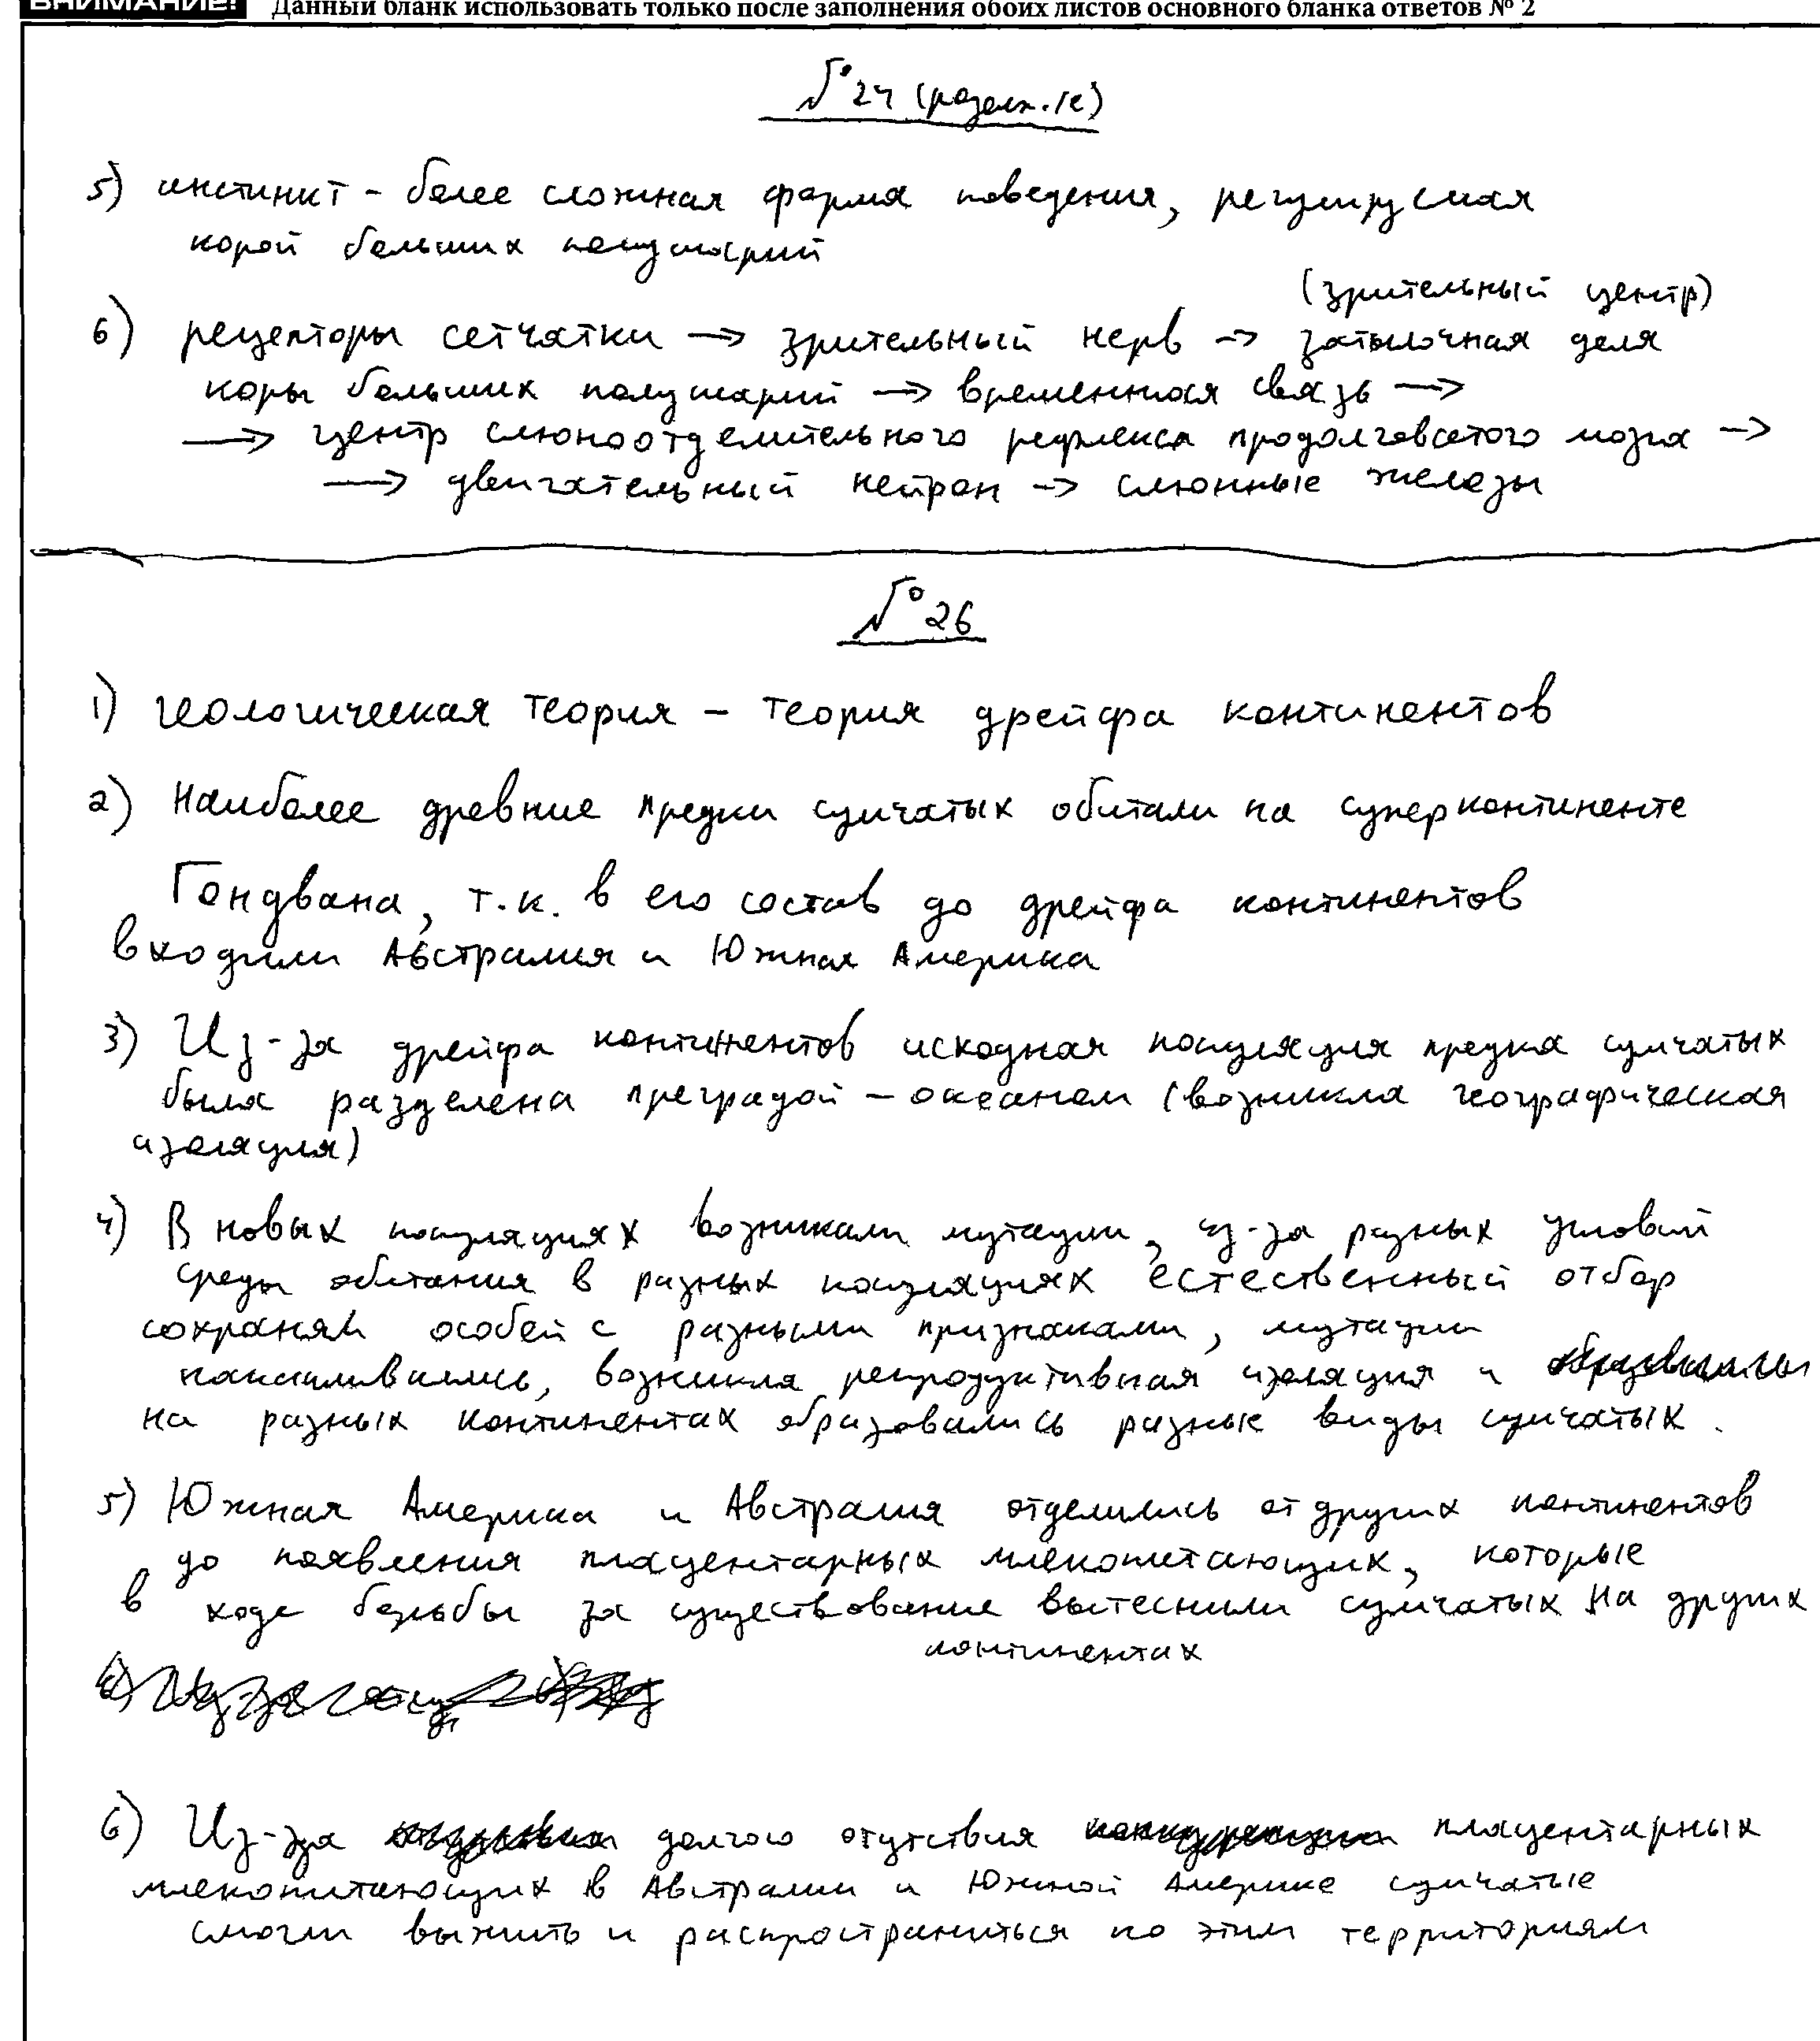 ВНИМАНИЕ! Данный бланк использовать только после заполнения обоих листов основного бланка ответов № 2
№ 24
5) инстинкт - более сложная форма поведения, регулируемая
корой больших полушарий
(зрительный центр)
6) рецепторы сетчатки → зрительный нерв → затылочная доля
коры больших полушарий → временная связь →
→ центр слюноотделительного рефлекса продолговатого мозга →
→ двигательный нейрон → слюнные железы
№ 26
1) геологическая теория - теория дрейфа континентов
2) Наиболее древние предки сумчатых обитали на суперконтиненте
Гондвана, т.к. в его состав до дрейфа континентов
входили Австралия и Южная Америка
3) Из-за дрейфа континентов исходная популяция предка сумчатых
была разделена преградой - океаном (возникла географическая
изоляция)
4) В новых популяциях возникали мутации, из-за разных условий
среды обитания в разных популяциях естественный отбор
сохранял особей с разными признаками, мутации
накапливались, возникла репродуктивная изоляция и
на разных континентах образовались разные виды сумчатых.
5) Южная Америка и Австралия отделились от других континентов
до появления плацентарных млекопитающих, которые
в ходе борьбы за существование вытеснили сумчатых на других
континентах
6) Из-за долгого отутствия плацентарных
млекопитающих в Австралии и Южной Америке сумчатые
смогли выжить и распространиться по этим территориям